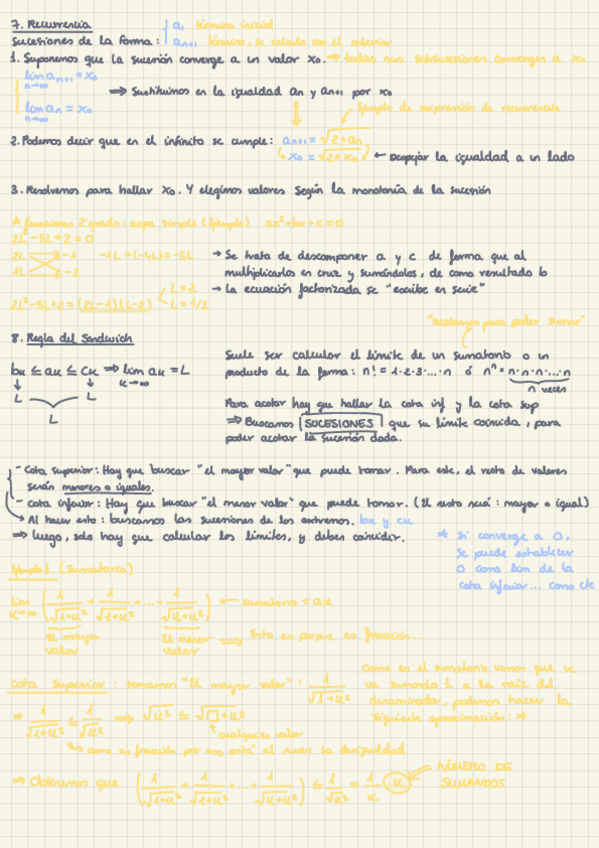 7. Recurrencia
Sucesiones de la forma: { a₁ término inicial
aₙ₊₁ término, se calcula con el anterior
1. Suponemos que la sucesión converge a un valor x₀. ⇒ todas sus subsucesiones convergen a x₀
{ lim aₙ₊₁ = x₀
n→∞
lim aₙ = x₀
n→∞
⇒ Sustituimos en la igualdad aₙ y aₙ₊₁ por x₀
Ejemplo de expresión de recurrencia
2. Podemos decir que en el infinito se cumple: aₙ₊₁ = √(2+aₙ)
x₀ = √(2+x₀) ← Despejar la igualdad a un lado
3. Resolvemos para hallar x₀. Y elegimos valores según la monotonía de la sucesión
* Ecuaciones 2º grado: aspa simple (Ejemplo) ax²+bx+c=0
2L²-5L+2=0
2L -1 -1L+(-4L)=-5L
1L -2
→ Se trata de descomponer a y c de forma que al
multiplicarlos en cruz y sumándolos, de como resultado b
→ La ecuación factorizada se "escribe en serie"
2L²-5L+2=(2L-1)(L-2) L=2
L=1/2
"acotamos para poder sumar"
8. Regla del Sandwich
bₖ ≤ aₖ ≤ cₖ ⇒ lim aₖ = L
k→∞
↓ ↓
L L
L
Suele ser calcular el límite de un sumatorio o un
producto de la forma: n! = 1·2·3·...·n ó nⁿ = n·n·n·...·n
n veces
Para acotar hay que hallar la cota inf y la cota sup
⇒ Buscamos SUCESIONES que su límite coincida, para
poder acotar la sucesión dada.
- Cota superior: Hay que buscar "el mayor valor" que puede tomar. Para este, el resto de valores
serán menores o iguales.
- Cota inferior: Hay que buscar "el menor valor" que puede tomar. (El resto será: mayor o igual)
→ Al hacer esto: buscamos las sucesiones de los extremos. bₖ y cₖ
⇒ Luego, solo hay que calcular los límites, y deben coincidir.
* Si converge a 0,
se puede establecer
0 como lim de la
cota inferior... como cte
Ejemplo 1. (Sumatorio)
lim (1/√(1+k²) + 1/√(2+k²) + ... + 1/√(k+k²)) ← sumatorio = aₖ
k→∞
El mayor
valor
El menor
valor
⇒ Esto es porque es fracción...
Cota Superior: tomamos "El mayor valor": 1/√(1+k²)
Como en el sumatorio vemos que se
va sumando 1 a la raíz del
denominador, podemos hacer la
siguiente aproximación: *
* 1/√(1+k²) ≤ 1/√k² ⇒ √k² ≤ √(□+k²)
cualquier valor
como es fracción por eso está al revés la desigualdad
⇒ Obtenemos que (1/√(1+k²) + 1/√(2+k²) + ... + 1/√(k+k²)) ≤ 1/√k² = 1/k · k
NÚMERO DE
SUMANDOS